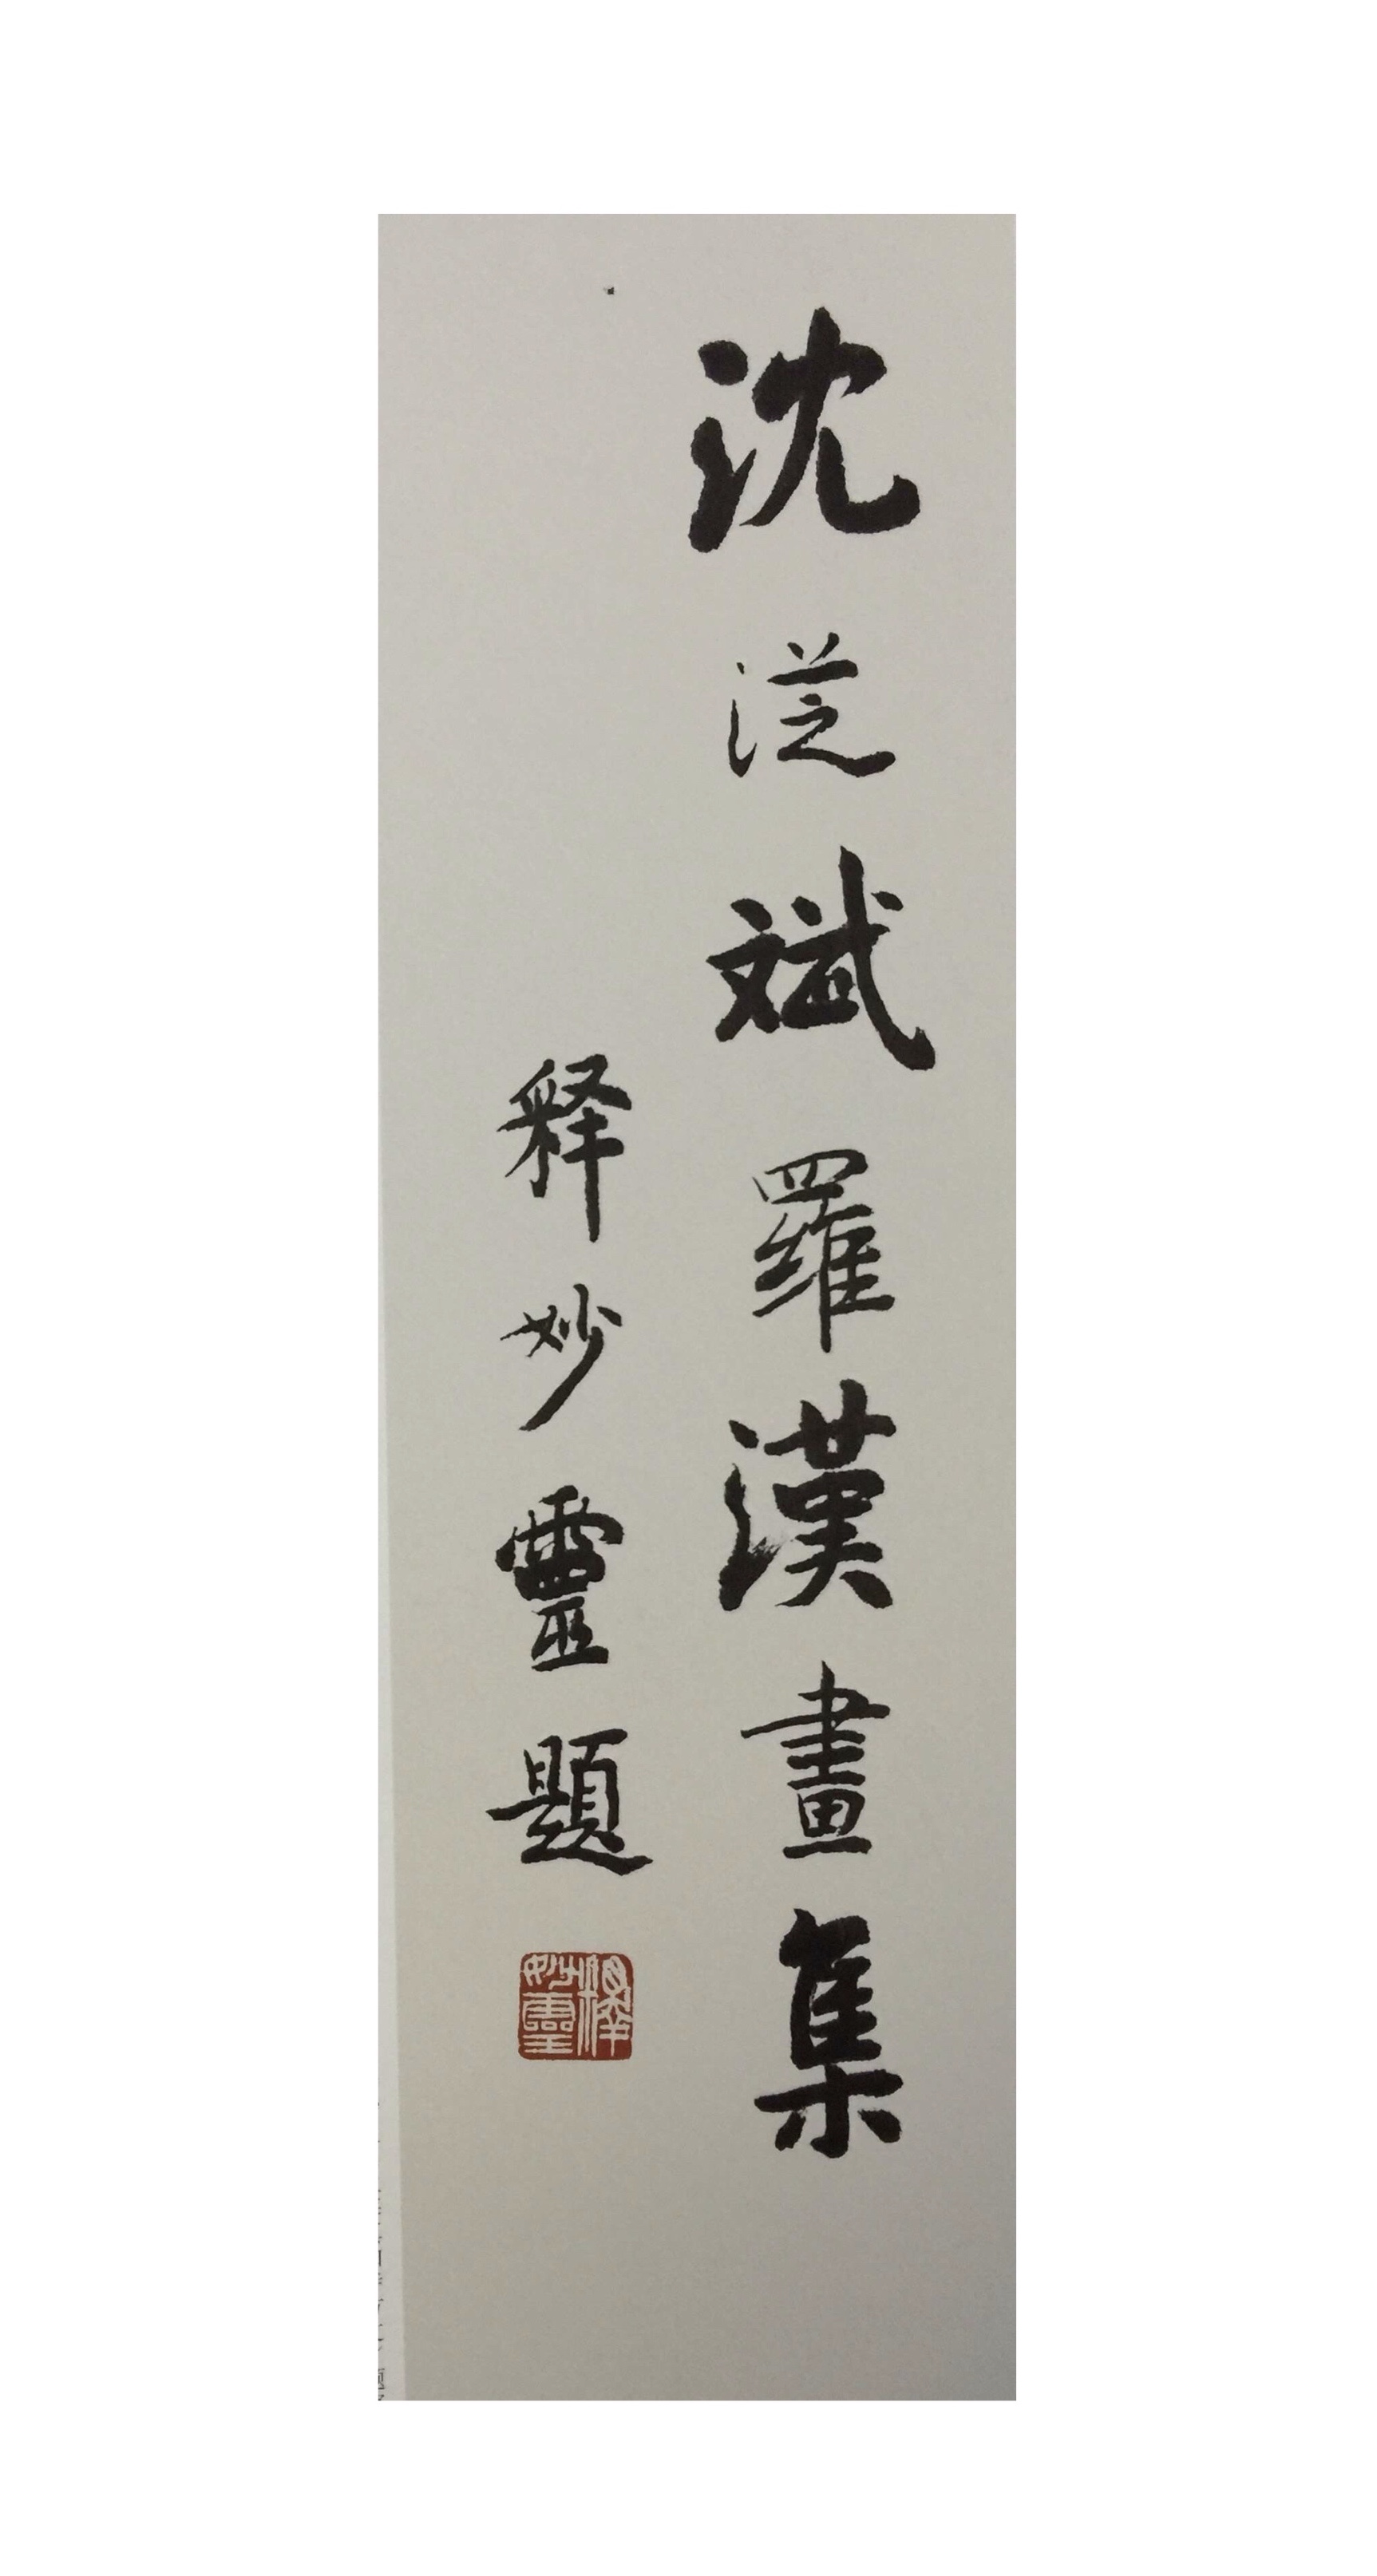 沈從斌羅漢畫集
释妙靈題
釋妙靈